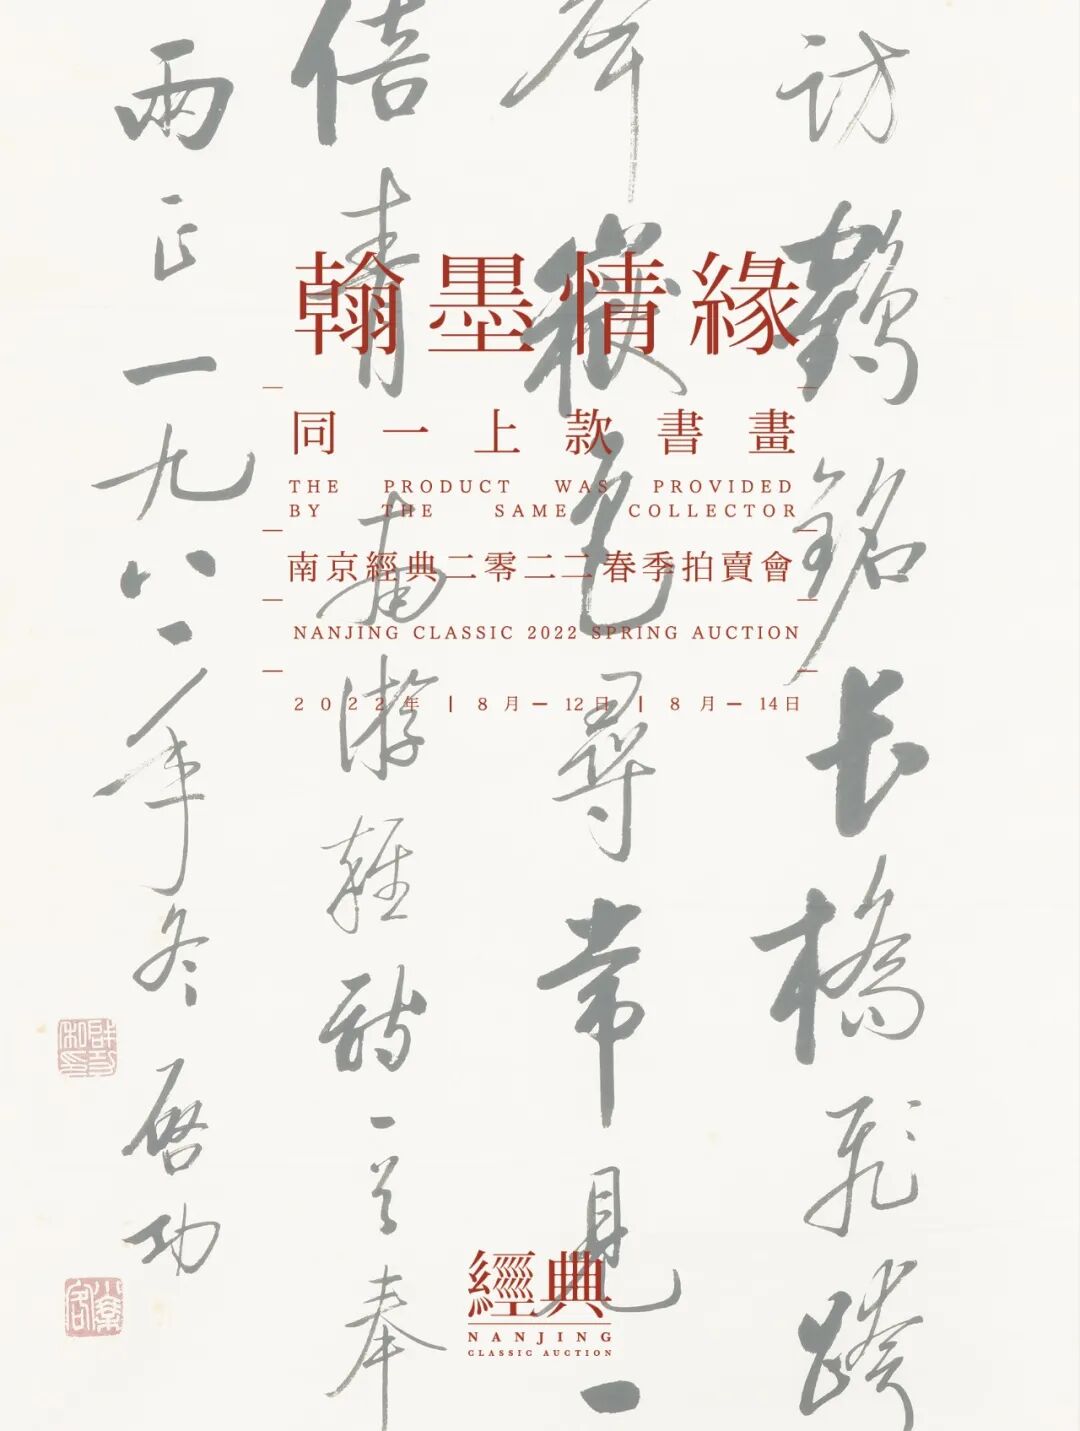 翰墨情緣
同一上款書畫
THE PRODUCT WAS PROVIDED
BY THE SAME COLLECTOR
南京經典二零二二春季拍賣會
NANJING CLASSIC 2022 SPRING AUCTION
2022年 | 8月—12日 | 8月—14日
訪鶴銘长橋飛跨
嶽色尋常見一
倍青南游雜詩一首奉
雨正一九八一年冬
啓功
經典
NANJING
CLASSIC AUCTION